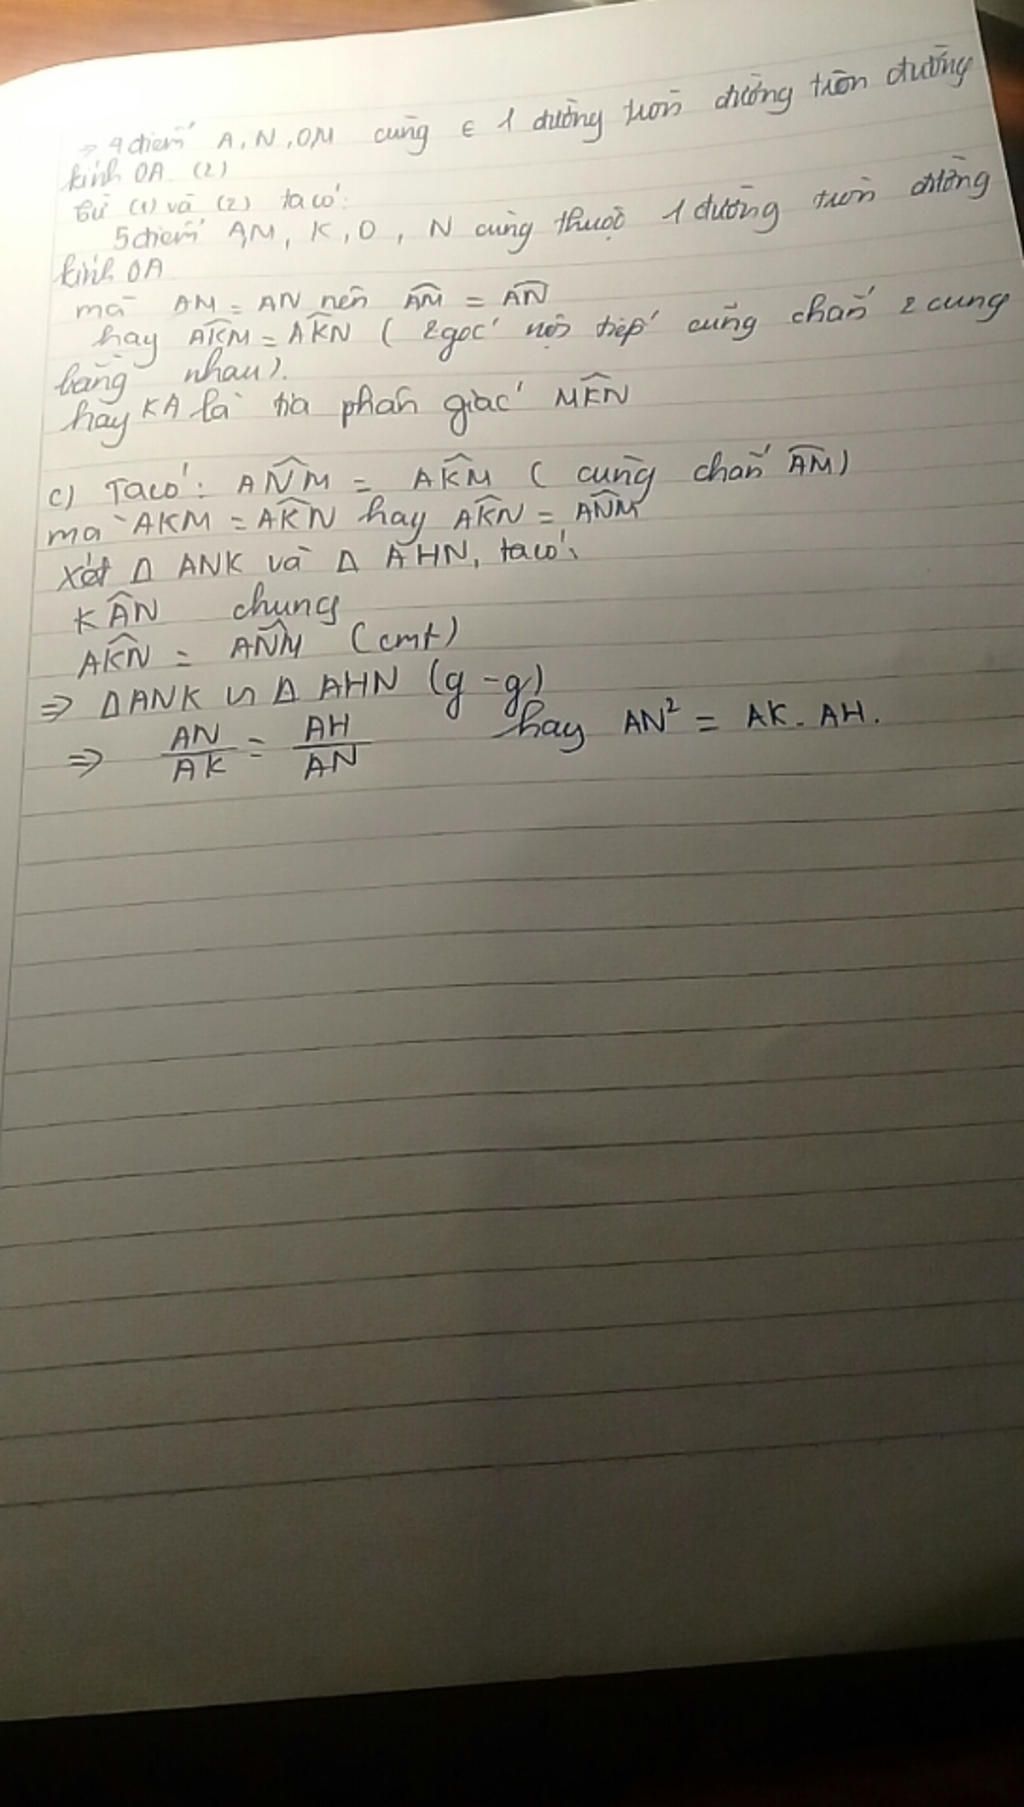 => 4 điểm A, N, O, M cùng ∈ 1 đường tròn đường tròn đường
kính OA. (2)
từ (1) và (2) ta có:
5 điểm A, M, K, O, N cùng thuộc 1 đường tròn đường
kính OA
mà AM = AN nên \widehat{AM} = \widehat{AN}
hay \widehat{AKM} = \widehat{AKN} ( 2 góc nội tiếp cùng chắn 2 cung
bằng nhau).
hay KA là tia phân giác \widehat{MKN}
c) Ta có: \widehat{ANM} = \widehat{AKM} ( cùng chắn \widehat{AM})
mà AKM = \widehat{AKN} hay \widehat{AKN} = \widehat{ANM}
Xét Δ ANK và Δ AHN, ta có:
\widehat{KAN} chung
\widehat{AKN} = \widehat{ANM} (cmt)
=> Δ ANK ∽ Δ AHN (g - g)
=> \frac{AN}{AK} = \frac{AH}{AN} hay AN² = AK. AH.